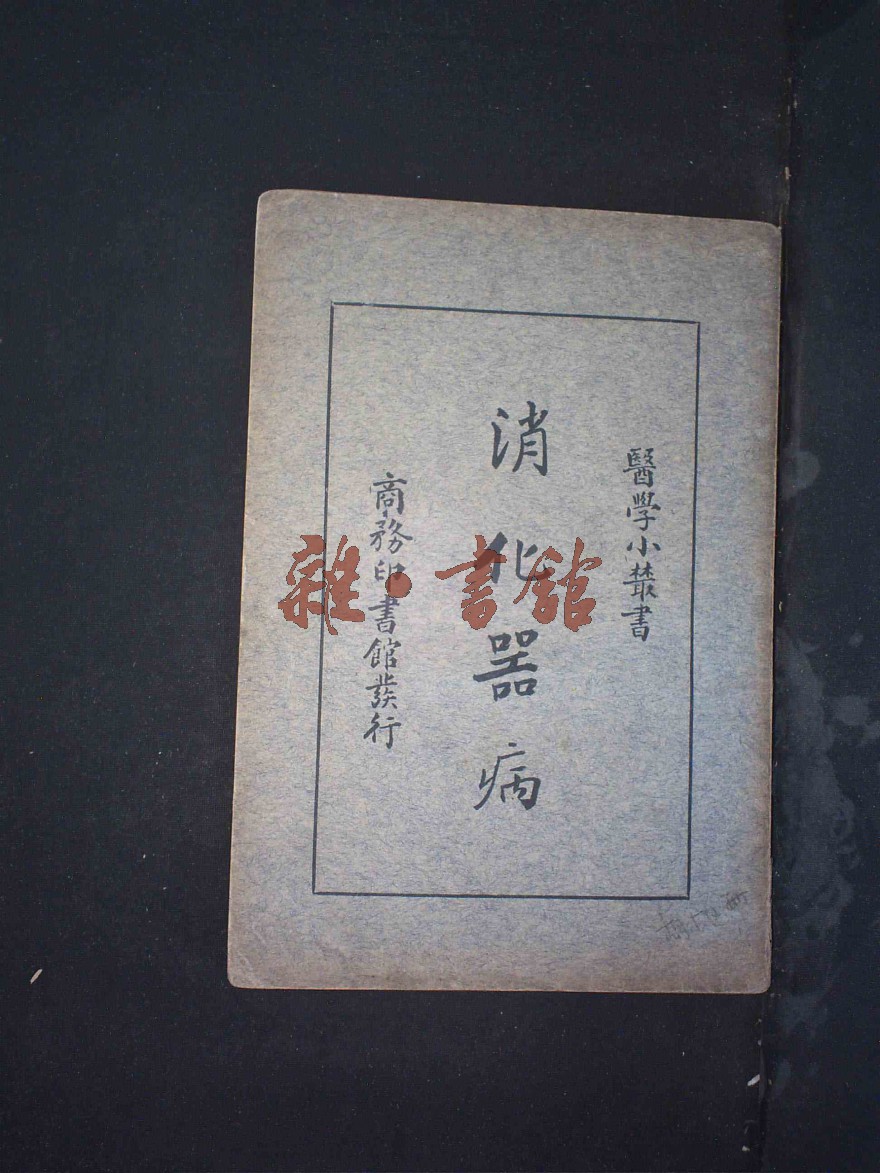 醫學小叢書
消化器病
商務印書館發行
雜·書館